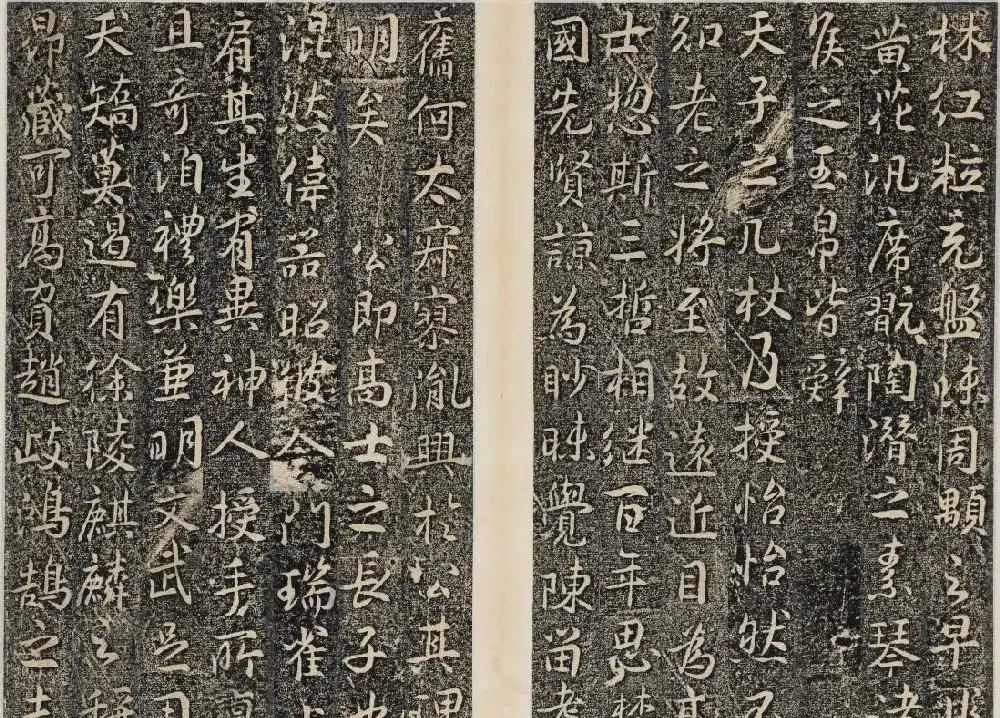 林紅粒充盤陳周顒之早
黃花汎席翫陶潛之素琴
侯之玉帛皆辭
天子之几杖乃授怡怡然
知老之將至故遠近目為
士惣斯三哲相繼百年思
國先賢諒為眇昧覺陳留耆
舊何太寂寥胤興於公其
明矣 公即高士之長子也
混然偉器昭彼令門瑞雀
肩其生有異神人授手所
且奇洎禮樂并明文武足用
夭矯莫過有徐陵麒麟之稱
昴藏可高賀趙歧鴻鵠之志